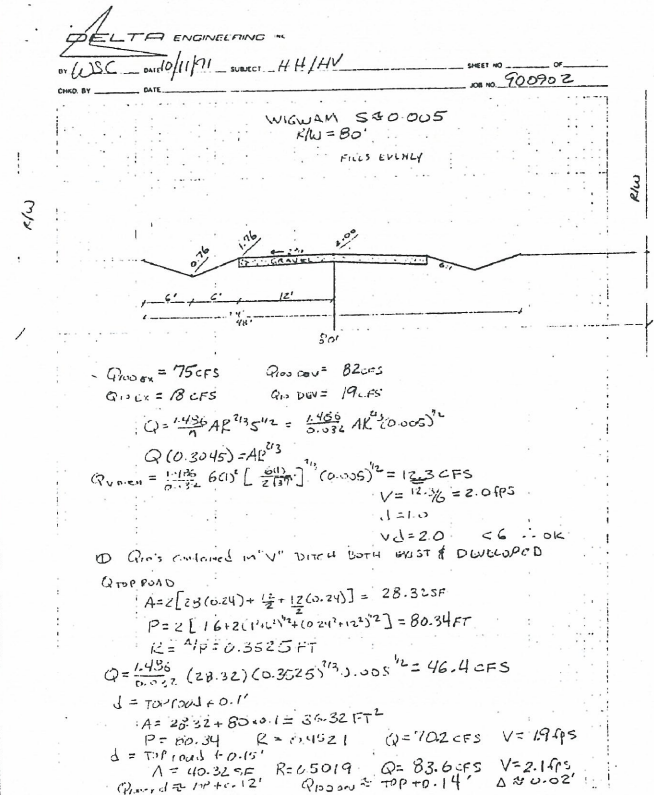 DELTA ENGINEERING INC
BY WSC DATE 10/11/91 SUBJECT HH/HV SHEET NO OF
CHKD. BY DATE JOB NO. 900902
WIGWAM S≈0.005
R/W = 80'
FILLS EVENLY
R/W
R/W
0.76 1.76 2.00
← 2%
GRAVEL
6:1
6' 6' 12'
48'
Q100 EX = 75 CFS Q100 DEV = 82 CFS
Q10 EX = 18 CFS Q10 DEV = 19 CFS
Q = 1.486/n AR^2/3 S^1/2 = 1.486/0.032 AR^2/3 (0.005)^1/2
Q (0.3045) = AR^2/3
Q V DITCH = 1.486/0.032 6(1)² [ 6(1) / 2√37 ]^2/3 (0.005)^1/2 = 12.3 CFS
V = 12.3/6 = 2.0 fps
d = 1.0
Vd = 2.0 < 6 ∴ OK
① Q10's contained in "V" DITCH BOTH EXIST & DEVELOPED
Q TOP ROAD
A = 2[28(0.24) + 12/2 + 12/2(0.24)] = 28.32 SF
P = 2[16 + 2(1²+6²)^1/2 + (0.24²+12²)^1/2] = 80.34 FT
R = A/P = 0.3525 FT
Q = 1.486/0.032 (28.32)(0.3525)^2/3 0.005^1/2 = 46.4 CFS
d = TOP road + 0.1'
A = 28.32 + 80×0.1 = 36.32 FT²
P = 80.34 R = 0.4521 Q = 70.2 CFS V = 1.9 fps
d = TOP road + 0.15'
A = 40.32 SF R = 0.5019 Q = 83.6 CFS V = 2.1 fps
TOP + 0.12' ≈ TOP + 0.14' Δ ≈ 0.02'